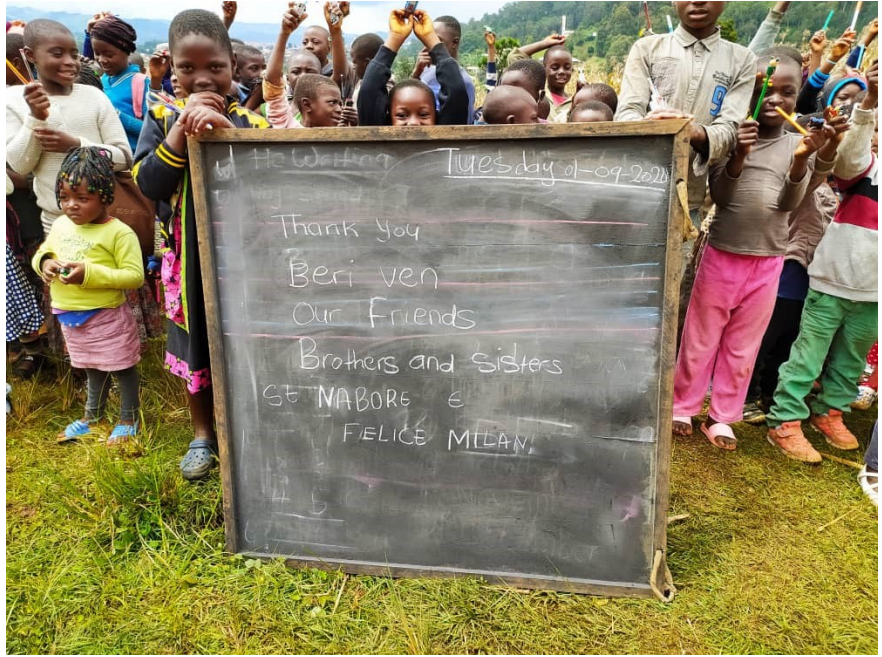 He Writing
Tuesday 01-09-2020
Thank you
Beri ven
Our Friends
Brothers and Sisters
St NABORE E
FELICE MILAN